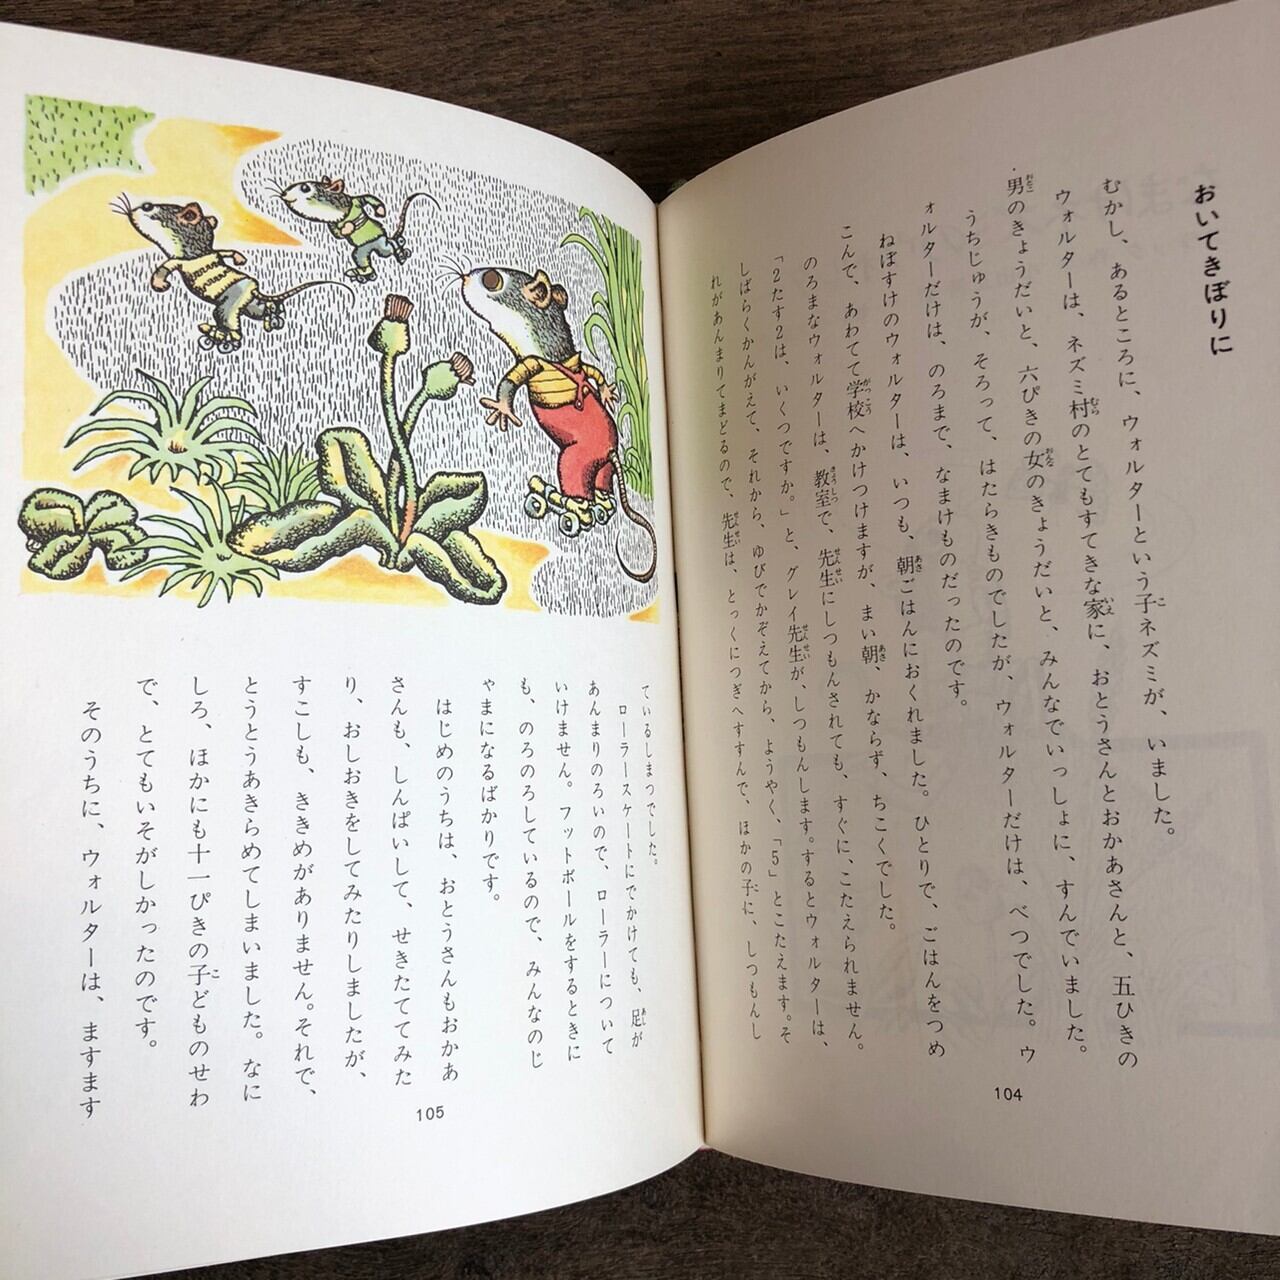 おいてきぼりに
むかし、あるところに、ウォルターという子ネズミが、いました。
ウォルターは、ネズミ村のとてもすてきな家に、おとうさんとおかあさんと、五ひきの
男のきょうだいと、六ぴきの女のきょうだいと、みんなでいっしょに、すんでいました。
うちじゅうが、そろって、はたらきものでしたが、ウォルターだけは、べつでした。ウ
ォルターだけは、のろまで、なまけものだったのです。
ねぼすけのウォルターは、いつも、朝ごはんにおくれました。ひとりで、ごはんをつめ
こんで、あわてて学校へかけつけますが、まい朝、かならず、ちこくでした。
のろまなウォルターは、教室で、先生にしつもんされても、すぐに、こたえられません。
「2たす2は、いくつですか。」と、グレイ先生が、しつもんします。するとウォルターは、
しばらくかんがえて、それから、ゆびでかぞえてから、ようやく、「5」とこたえます。そ
れがあんまりてまどるので、先生は、とっくにつぎへすすんで、ほかの子に、しつもんし
104
ているしまつでした。
ローラースケートにでかけても、足が
あんまりのろいので、ローラーについて
いけません。フットボールをするときに
も、のろのろしているので、みんなのじ
ゃまになるばかりです。
はじめのうちは、おとうさんもおかあ
さんも、しんぱいして、せきたててみた
り、おしおきをしてみたりしましたが、
すこしも、ききめがありません。それで、
とうとうあきらめてしまいました。なに
しろ、ほかにも十一ぴきの子どものせわ
で、とてもいそがしかったのです。
そのうちに、ウォルターは、ますます
105